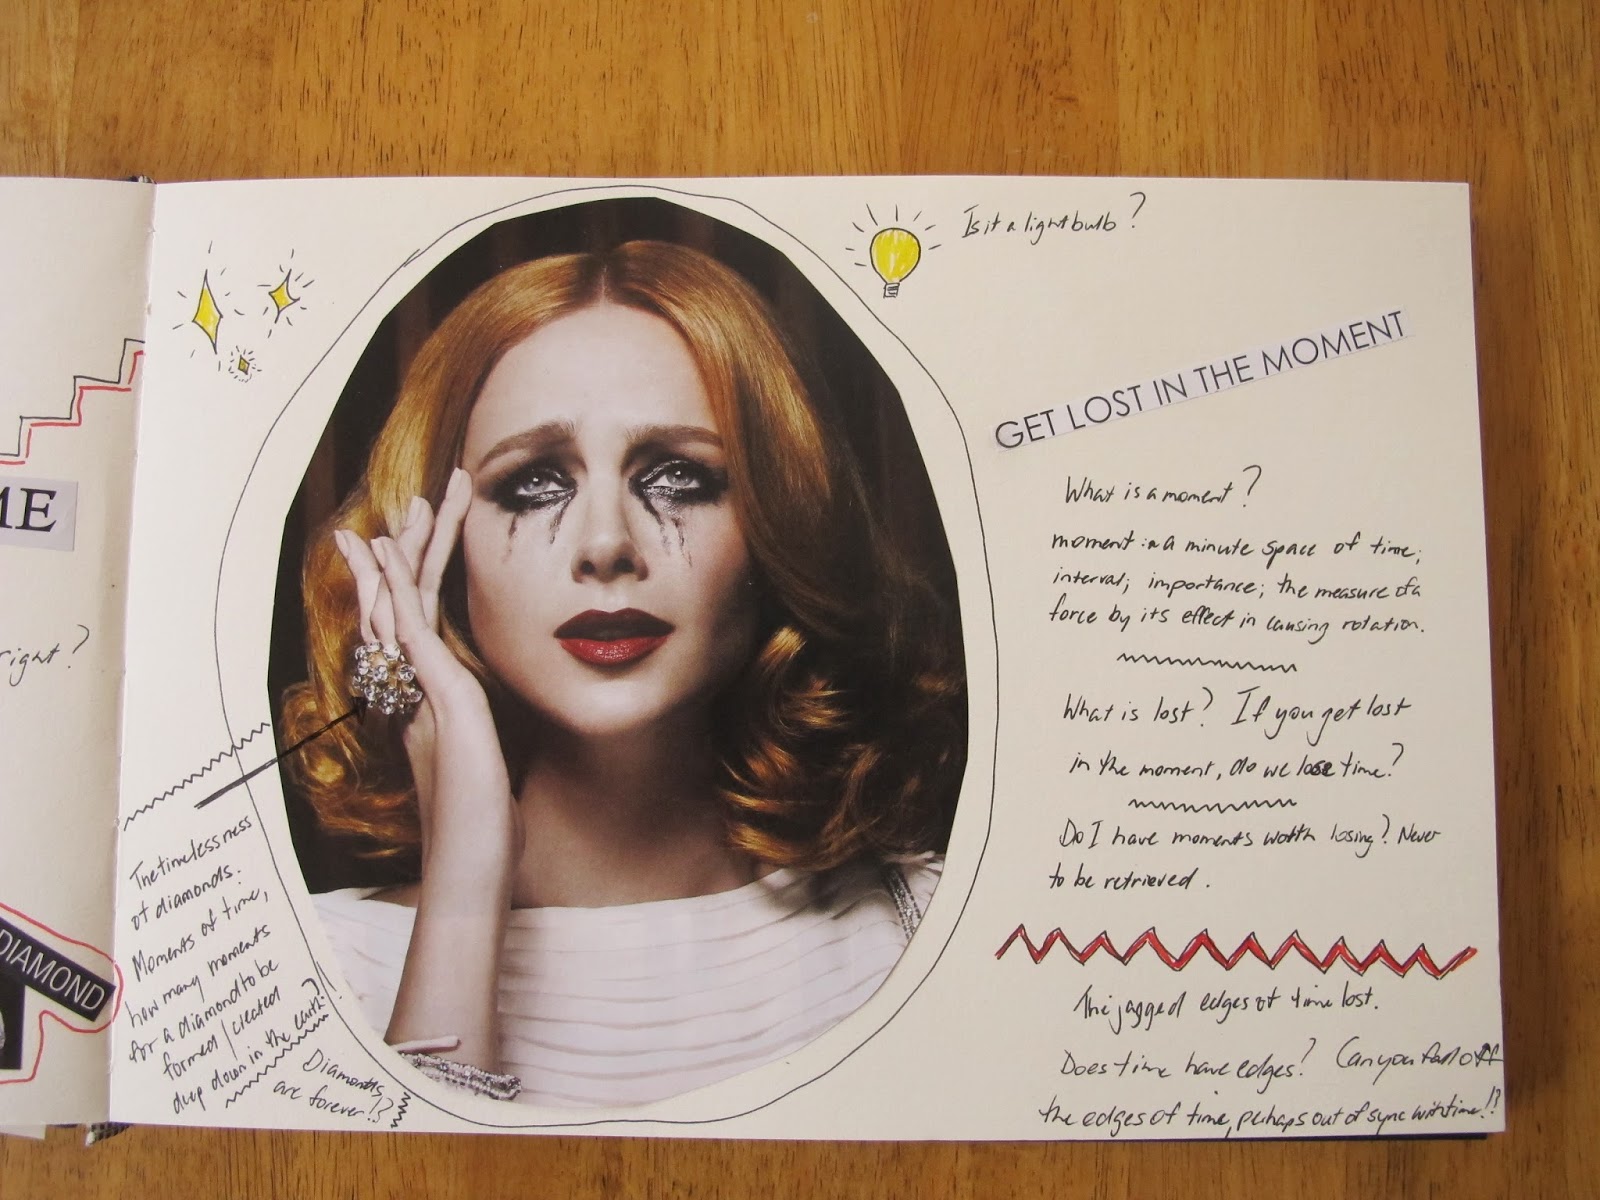 ME
right?
DIAMOND
Is it a lightbulb?
GET LOST IN THE MOMENT
What is a moment?
moment: n a minute space of time;
interval; importance; the measure of a
force by its effect in causing rotation.
What is lost? If you get lost
in the moment, do we lose time?
Do I have moments worth losing? Never
to be retrieved.
The jagged edges of time lost.
Does time have edges? Can you fall off
the edges of time, perhaps out of sync with time!?
The timelessness
of diamonds.
Moments of time,
how many moments
for a diamond to be
formed/created
deep down in the earth?
Diamonds
are forever!?